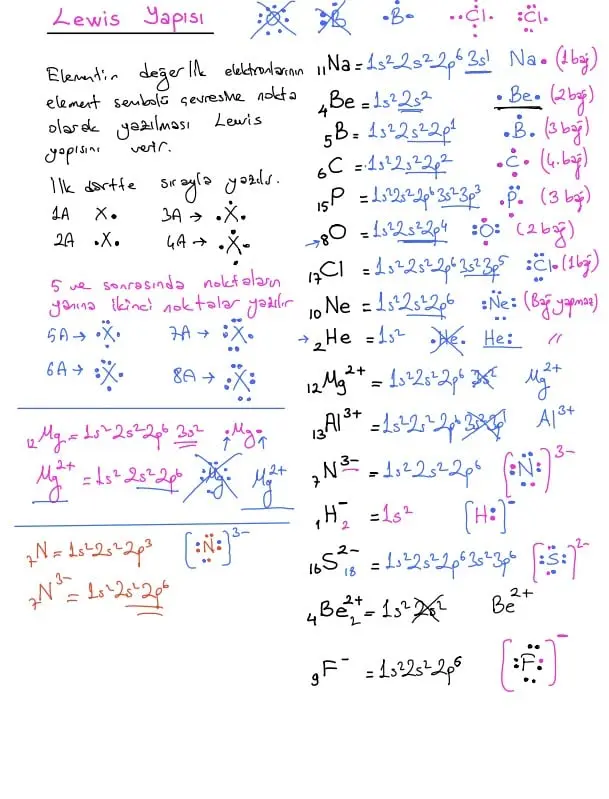 Lewis Yapısı
Elementin değerlik elektronlarının
element sembolü çevresine nokta
olarak yazılması Lewis
yapısını verir.
İlk dörtte sırayla yazılır.
1A X• 3A → •X•
2A •X• 4A → •X•
5 ve sonrasında noktaların
yanına ikinci noktalar yazılır
5A → X 7A → X
6A → X 8A → X
₁₂Mg = 1s²2s²2p⁶ 3s² •Mg•
Mg²⁺ = 1s² 2s²2p⁶ Mg Mg²⁺
₇N = 1s²2s²2p³ [:N:]³⁻
₇N³⁻ = 1s²2s²2p⁶
O B •B• Cl Cl
₁₁Na = 1s²2s²2p⁶ 3s¹ Na• (1bağ)
₄Be = 1s²2s² •Be• (2bağ)
₅B = 1s²2s²2p¹ •B• (3bağ)
₆C = 1s²2s²2p² •C• (4.bağ)
₁₅P = 1s²2s²2p⁶3s²3p³ •P• (3 bağ)
→₈O = 1s²2s²2p⁴ :O: (2 bağ)
₁₇Cl = 1s²2s²2p⁶3s²3p⁵ :Cl• (1bağ)
₁₀Ne = 1s²2s²2p⁶ :Ne: (Bağ yapmaz)
→₂He = 1s² •He• He: //
₁₂Mg²⁺ = 1s²2s²2p⁶ 3s² Mg²⁺
₁₃Al³⁺ = 1s²2s²2p⁶ 3s²3p¹ Al³⁺
₇N³⁻ = 1s²2s²2p⁶ [:N:]³⁻
₁H⁻₂ = 1s² [H:]⁻
₁₆S²⁻₁₈ = 1s²2s²2p⁶3s²3p⁶ [:S:]²⁻
₄Be²⁺₂ = 1s² 2s² Be²⁺
₉F⁻ = 1s²2s²2p⁶ [:F:]⁻